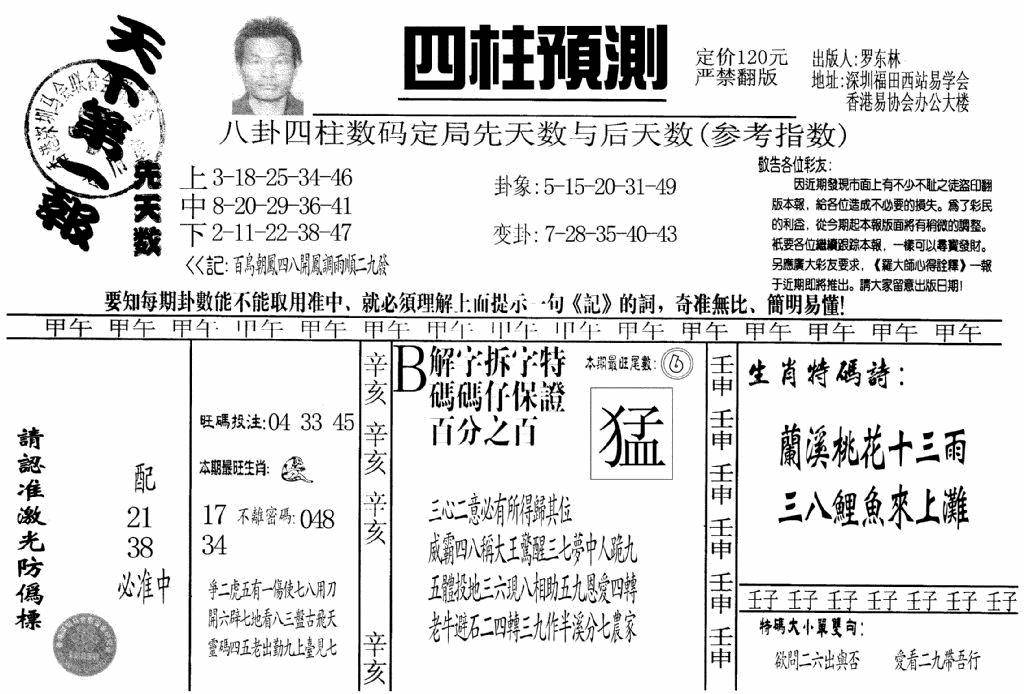 天下第一報
四柱預測
定价120元
严禁翻版
出版人:罗东林
地址:深圳福田西站易学会
香港易协会办公大楼
八卦四柱数码定局先天数与后天数(参考指数)
先天数
上 3-18-25-34-46
中 8-20-29-36-41
下 2-11-22-38-47
<<記:百鳥朝鳳四八開鳳調雨順二九發
卦象:5-15-20-31-49
变卦:7-28-35-40-43
敬告各位彩友:
因近期發現市面上有不少不耻之徒盜印翻
版本報,給各位造成不必要的損失。爲了彩民
的利益,從今期起本報版面將有稍微的調整。
衹要各位繼續跟踪本報,一樣可以尋寶發財。
另應廣大彩友要求,《羅大師心得詮釋》一報
于近期即將推出。請大家留意出版日期!
要知每期卦數能不能取用准中、就必須理解上面提示一句《記》的詞,奇准無比、簡明易懂!
甲午 甲午 甲午 甲午 甲午 甲午 甲午 甲午 甲午 甲午 甲午 甲午 甲午 甲午 甲午
請認准激光防僞標
配
21
38
必准中
旺碼投注:04 33 45
本期最旺生肖:
17 不離密碼:048
34
爭二虎五有一傷使七八用刀
開六辟七地看八三盤古飛天
靈碼四五老出勤九上臺見七
辛亥 辛亥 辛亥 辛亥
B 解字拆字特
碼碼仔保證
百分之百
本期最旺尾數:6
猛
三心二意必有所得歸其位
威霸四八稱大王驚醒三七夢中人跪九
五體投地三六現八相助五九恩愛四轉
老牛避石二四轉三九作半溪分七農家
壬申 壬申 壬申 壬申 壬申 壬申
生肖特碼詩:
蘭溪桃花十三雨
三八鯉魚來上灘
壬子 壬子 壬子 壬子 壬子 壬子 壬子
特碼大小單雙句:
欲問二六出與否 愛看二九帶吾行